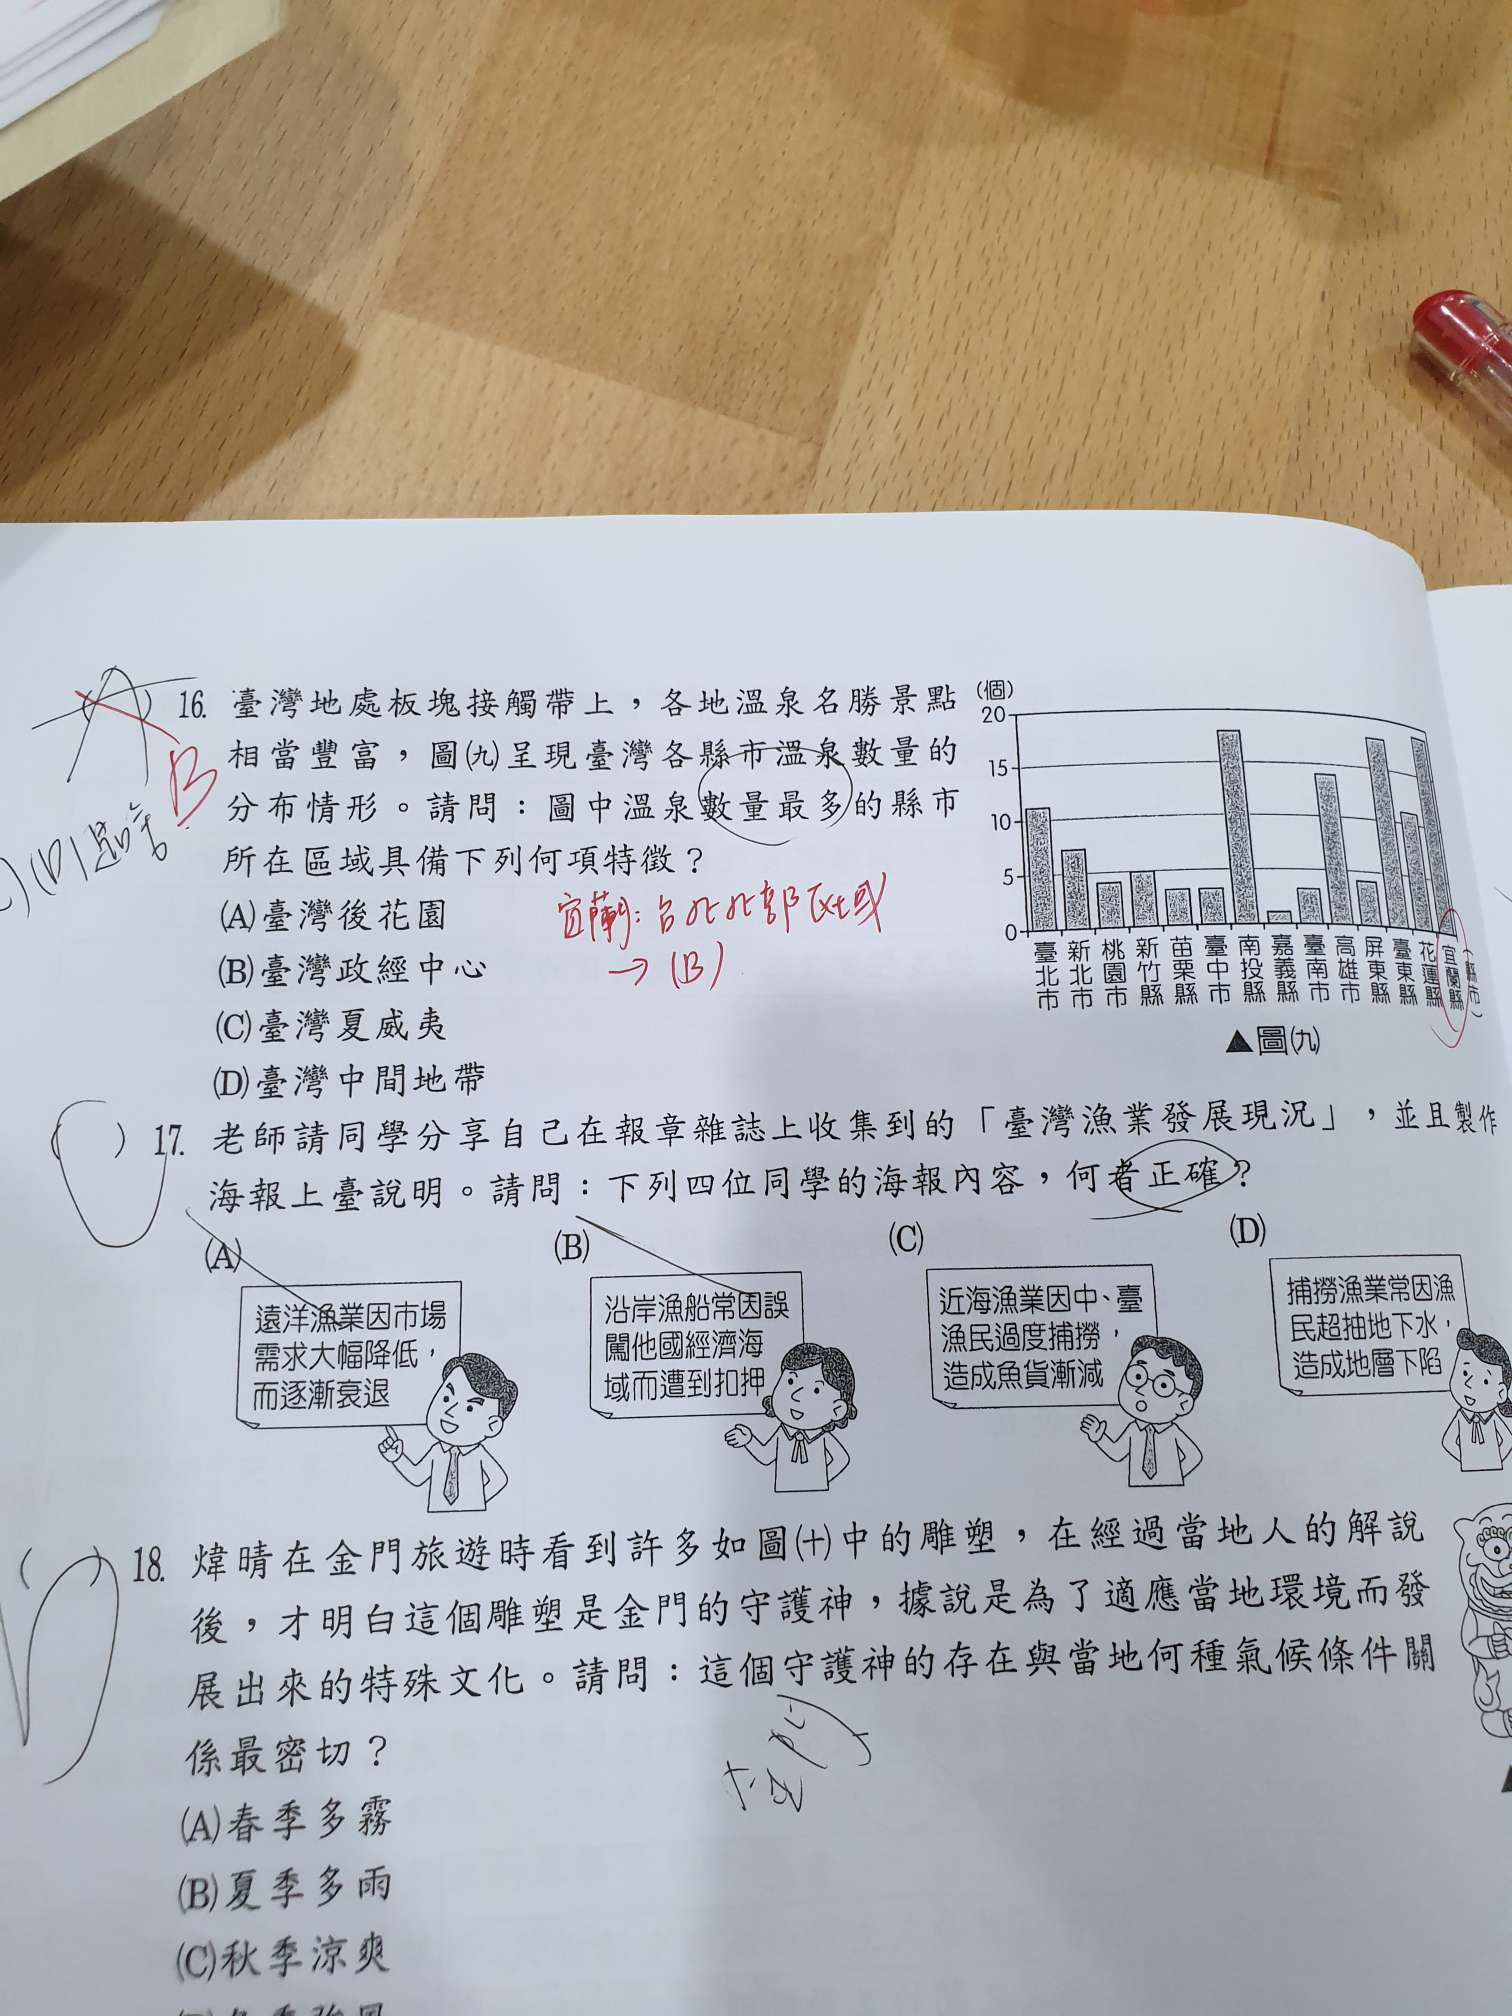 16. 臺灣地處板塊接觸帶上，各地溫泉名勝景點
相當豐富，圖㈨呈現臺灣各縣市溫泉數量的
分布情形。請問：圖中溫泉數量最多的縣市
所在區域具備下列何項特徵？
(A)臺灣後花園
(B)臺灣政經中心
(C)臺灣夏威夷
(D)臺灣中間地帶
B
宜蘭：台北北部區域
→ (B)
(個)
20
15
10
5
0
臺北市
新北市
桃園市
新竹縣
苗栗縣
臺中市
南投縣
嘉義縣
臺南市
高雄市
屏東縣
臺東縣
花蓮縣
宜蘭縣
(縣市)
▲圖㈨
( ) 17. 老師請同學分享自己在報章雜誌上收集到的「臺灣漁業發展現況」，並且製作
海報上臺說明。請問：下列四位同學的海報內容，何者正確？
(A)
遠洋漁業因市場
需求大幅降低，
而逐漸衰退
(B)
沿岸漁船常因誤
闖他國經濟海
域而遭到扣押
(C)
近海漁業因中、臺
漁民過度捕撈，
造成魚貨漸減
(D)
捕撈漁業常因漁
民超抽地下水，
造成地層下陷
( ) 18. 煒晴在金門旅遊時看到許多如圖㈩中的雕塑，在經過當地人的解說
後，才明白這個雕塑是金門的守護神，據說是為了適應當地環境而發
展出來的特殊文化。請問：這個守護神的存在與當地何種氣候條件關
係最密切？
(A)春季多霧
(B)夏季多雨
(C)秋季涼爽